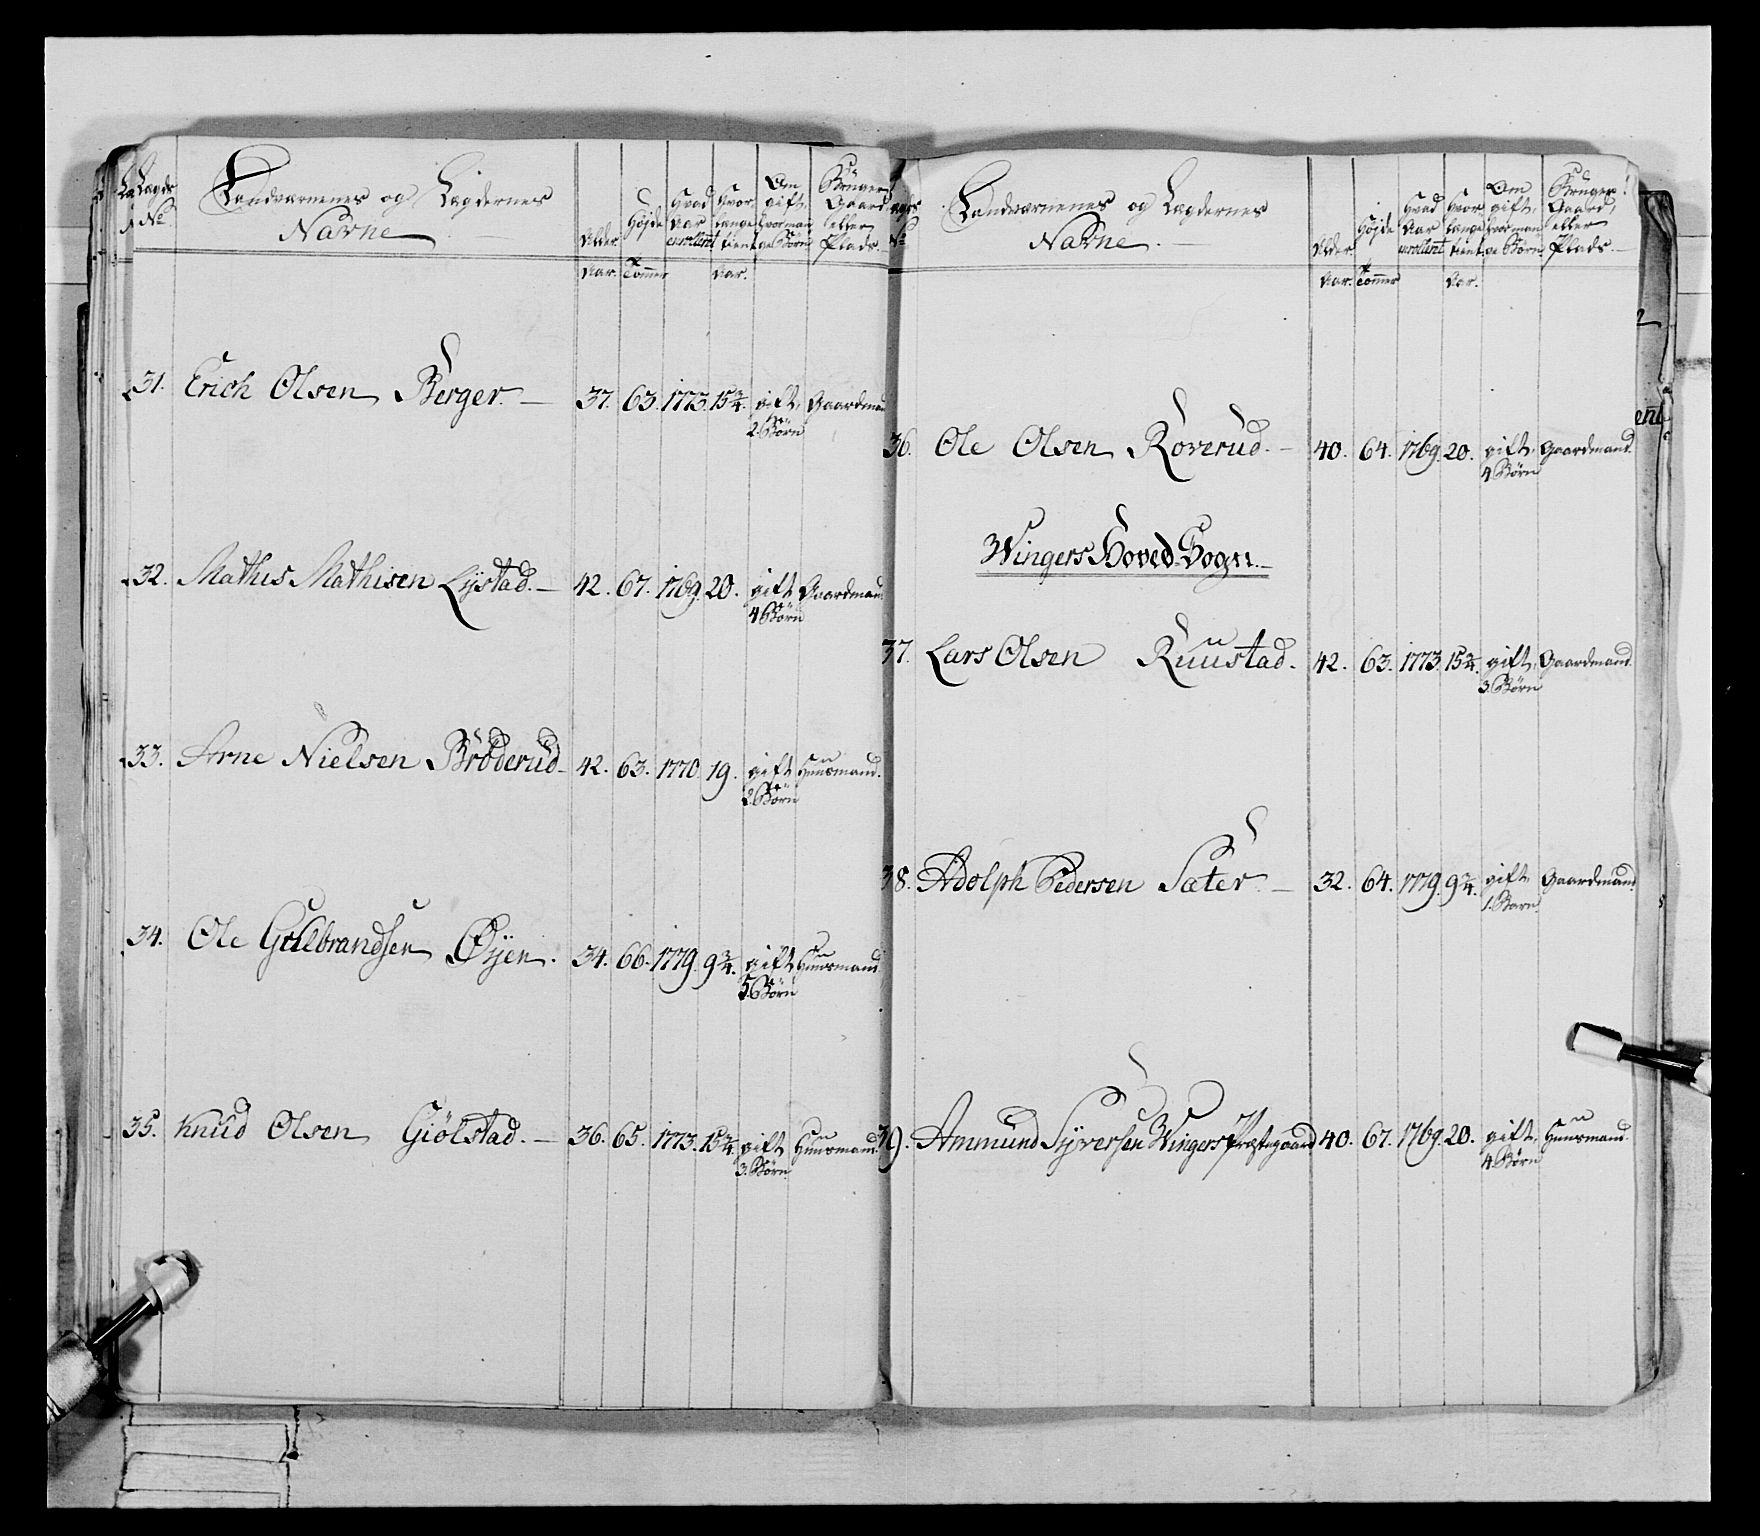 Lagds No
Landværnenes og Lægdernes
Navne
Alder
Højde
Hvad Aar enrolleret
Hvor længe tient
Om gift, hvor mange Børn
Bruger Gaard eller Plads.
Aar. Tommer Aar.
31. Erich Olsen Berger. — 37. 63. 1773. 15¾. gift, Gaardmand
2. Børn
32. Mathis Mathisen Lystad. — 42. 67. 1769. 20. gift Gaardmand
4 Børn
33. Arne Nielsen Bröderud 42. 63. 1770. 19. gift Huusmand.
2. Børn
34. Ole Gulbrandsen Øyen. 34. 66. 1779. 9¾. gift Huusmand
5. Børn
35. Knud Olsen Giölstad. — 36. 65. 1773. 15¾. gift Huusmand.
3. Børn
Landværnenes og Lægdernes
Navne
Alder
Højde
Hvad Aar enrolleret
Hvor længe tient
Om gift, hvor mange Børn
Bruger Gaard, eller Plads.
Aar. Tommer Aar.
36. Ole Olsen Roverud. — 40. 64. 1769. 20. gift, Gaardmand.
4 Børn
Wingers Hoved-Sogn.
37. Lars Olsen Ruustad. 42. 63. 1773. 15¾. gift, Gaardmand.
3. Børn
38. Adolph Pedersen Sæter. — 32. 64. 1779. 9¾. gift, Gaardmand
1. Barn
39. Ammund Syversen Wingers Præstegaard 40. 67. 1769. 20. gift, Huusmand.
4. Børn